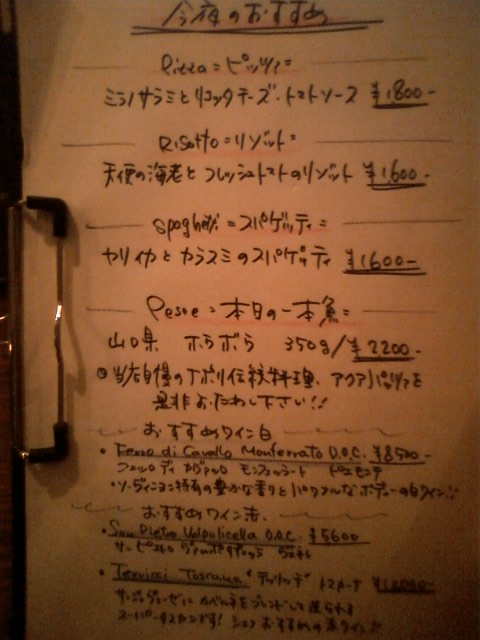 今夜のおすすめ
Pizza=ピッツァ=
ミラノサラミとリコッタチーズ・トマトソース ¥1800-
Risotto=リゾット=
天使の海老とフレッシュトマトのリゾット ¥1600-
Spaghetti=スパゲッティ=
ヤリイカとカラスミのスパゲッティ ¥1600-
Pesce=本日の一本魚=
山口県 ホウボウ 350g/¥2200-
◎当店自慢のナポリ伝統料理、アクアパッツァを
是非おためし下さい!!
おすすめワイン白
・Ferro di Cavallo Monferrato D.O.C. ¥8500-
フェッロ ディ カヴァッロ モンフェッラート ピエモンテ
・ソーヴィニヨン特有の豊かな香りとパワフルなボディーの白ワイン!!
おすすめワイン赤
・San Pietro Valpolicella D.O.C. ¥5600
サン ピエトロ ヴァルポリチェッラ ヴェネト
・Toscana トスカーナ
サンジョヴェーゼにカベルネをブレンドして造られる
スーパートスカンです! シェフおすすめの赤ワイン!!